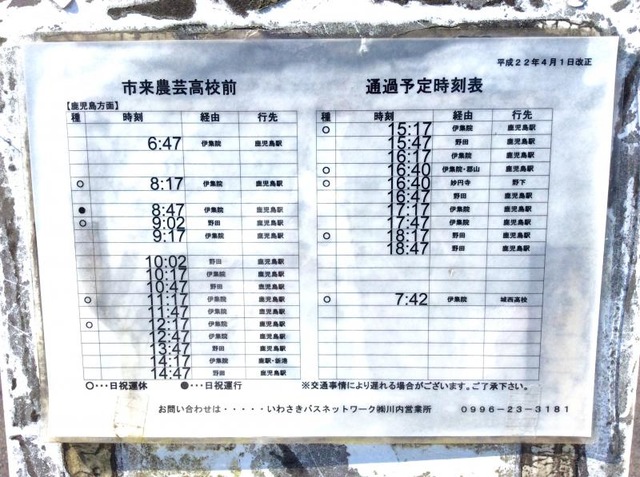 平成22年4月1日改正
市来農芸高校前 通過予定時刻表
【鹿児島方面】
種 時刻 経由 行先
6:47 伊集院 鹿児島駅
○ 8:17 伊集院 鹿児島駅
● 8:47 伊集院 鹿児島駅
○ 9:02 野田 鹿児島駅
9:17 伊集院 鹿児島駅
10:02 野田 鹿児島駅
10:17 伊集院 鹿児島駅
10:47 野田 鹿児島駅
○ 11:17 伊集院 鹿児島駅
11:47 伊集院 鹿児島駅
○ 12:17 伊集院 鹿児島駅
12:47 伊集院 鹿児島駅
13:47 野田 鹿児島駅
14:17 伊集院 鹿駅・新港
14:47 野田 鹿児島駅
種 時刻 経由 行先
○ 15:17 伊集院 鹿児島駅
15:47 野田 鹿児島駅
16:17 伊集院 鹿児島駅
○ 16:40 伊集院・郡山 鹿児島駅
○ 16:40 妙円寺 野下
16:47 野田 鹿児島駅
17:17 伊集院 鹿児島駅
17:47 伊集院 鹿児島駅
○ 18:17 野田 鹿児島駅
18:47 野田 鹿児島駅
○ 7:42 伊集院 城西高校
○・・・日祝運休 ●・・・日祝運行 ※交通事情により遅れる場合がございます。ご了承下さい。
お問い合わせは・・・・・いわさきバスネットワーク㈱川内営業所 0996-23-3181